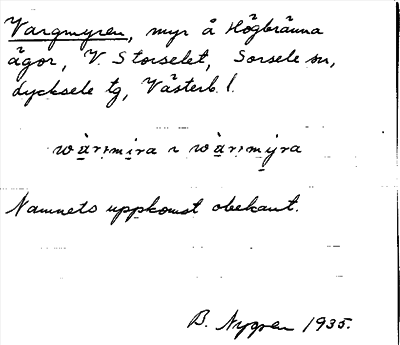 Vargmyren, myr å Högbränna
ägor, V. Storselet, Sorsele sn,
Lycksele tg, Västerb. l.
wàr:mi̱ra ɿ wàr:mýra
Namnets uppkomst obekant.
B. Nygren 1935.